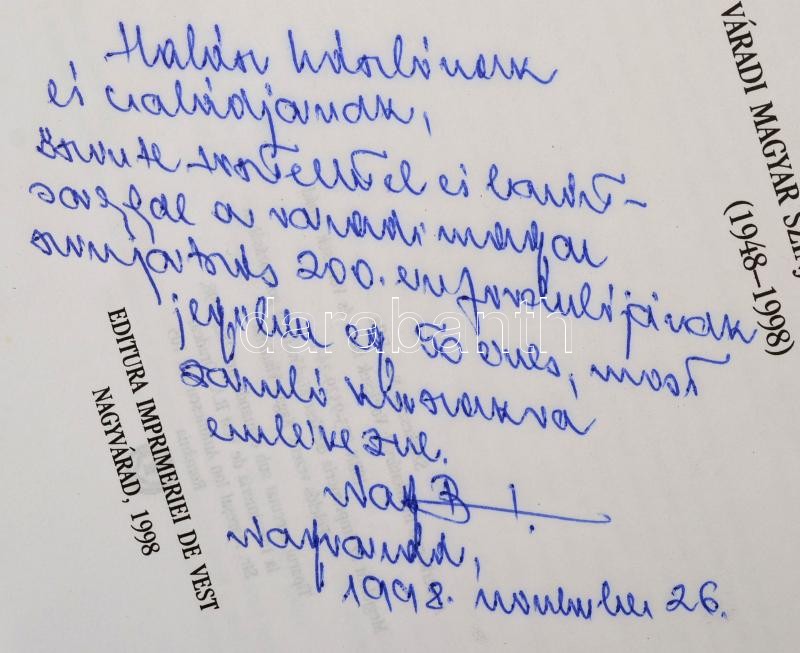 Halász Lászlónak
és családjának,
őszinte tisztelettel és barát-
sággal a váradi magyar
színjátszás 200. évfordulójának
jegyében az 50 éves, most
záruló korszakra
emlékezve.
Nagy B I.
Nagyvárad,
1998. november 26.
VÁRADI MAGYAR SZÍNJ
(1948–1998)
EDITURA IMPRIMERIEI DE VEST
NAGYVÁRAD, 1998
darabanth